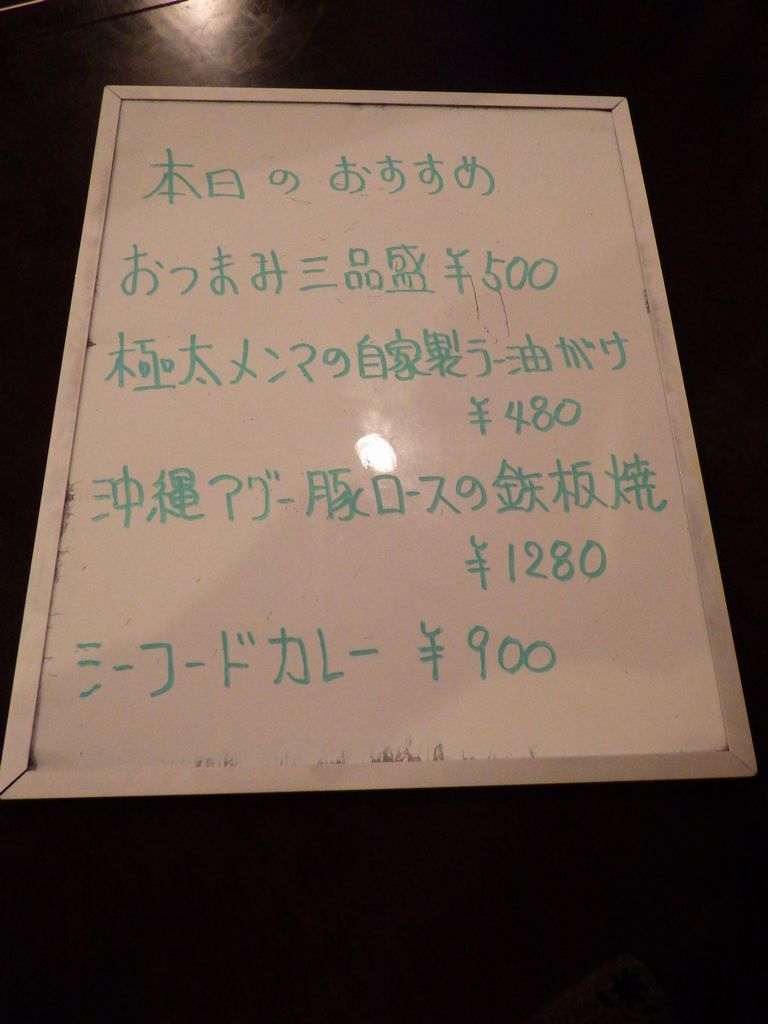 本日のおすすめ
おつまみ三品盛¥500
極太メンマの自家製ラー油がけ
¥480
沖縄アグー豚ロースの鉄板焼
¥1280
シーフードカレー ¥900